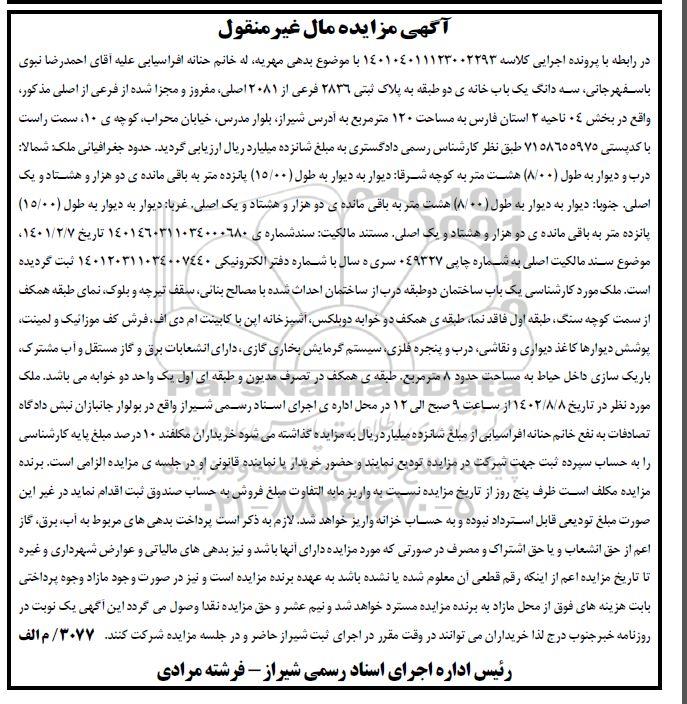 آگهی مزایده مال غیرمنقول
در رابطه با پرونده اجرایی کلاسه ۱۴۰۱۰۴۰۱۱۱۲۳۰۰۲۲۹۳ با موضوع بدهی مهریه، له خانم حنانه افراسیابی علیه آقای احمدرضا نبوی
باسفهرجانی، سه دانگ یک باب خانه ی دو طبقه به پلاک ثبتی ۲۸۳۶ فرعی از ۲۰۸۱ اصلی، مفروز و مجزا شده از فرعی از اصلی مذکور،
واقع در بخش ۰۴ ناحیه ۲ استان فارس به مساحت ۱۲۰ مترمربع به آدرس شیراز، بلوار مدرس، خیابان محراب، کوچه ی ۱۰، سمت راست
با کدپستی ۷۱۵۸۶۵۵۹۷۵ طبق نظر کارشناس رسمی دادگستری به مبلغ شانزده میلیارد ریال ارزیابی گردید. حدود جغرافیائی ملک: شمالا:
درب و دیوار به طول (۸/۰۰) هشت متر به کوچه شرقا: دیوار به دیوار به طول (۱۵/۰۰) پانزده متر به باقی مانده ی دو هزار و هشتاد و یک
اصلی. جنوبا: دیوار به دیوار به طول (۸/۰۰) هشت متر به باقی مانده ی دو هزار و هشتاد و یک اصلی. غربا: دیوار به دیوار به طول (۱۵/۰۰)
پانزده متر به باقی مانده ی دو هزار و هشتاد و یک اصلی. مستند مالکیت: سندشماره ی ۱۴۰۱۴۶۰۳۱۱۰۳۴۰۰۰۶۸۰ تاریخ ۱۴۰۱/۲/۷،
موضوع سند مالکیت اصلی به شماره چاپی ۰۴۹۳۲۷ سری ه سال با شماره دفتر الکترونیکی ۱۴۰۱۲۰۳۱۱۰۳۴۰۰۷۴۴۰ ثبت گردیده
است. ملک مورد کارشناسی یک باب ساختمان دوطبقه درب از ساختمان احداث شده با مصالح بنائی، سقف تیرچه و بلوک، نمای طبقه همکف
از سمت کوچه سنگ، طبقه اول فاقد نما، طبقه ی همکف دو خوابه دوبلکس، آشپزخانه اپن با کابینت ام دی اف، فرش کف موزائیک و لمینت،
پوشش دیوارها کاغذ دیواری و نقاشی، درب و پنجره فلزی، سیستم گرمایش بخاری گازی، دارای انشعابات برق و گاز مستقل و آب مشترک،
باریک سازی داخل حیاط به مساحت حدود ۸ مترمربع. طبقه ی همکف در تصرف مدیون و طبقه ای اول یک واحد دو خوابه می باشد. ملک
مورد نظر در تاریخ ۱۴۰۲/۸/۸ از ساعت ۹ صبح الی ۱۲ در محل اداره ی اجرای اسناد رسمی شیراز واقع در بولوار جانبازان نبش دادگاه
تصادفات به نفع خانم حنانه افراسیابی از مبلغ شانزده میلیارد ریال به مزایده گذاشته می شود خریداران مکلفند ۱۰ درصد مبلغ پایه کارشناسی
را به حساب سپرده ثبت جهت شرکت در مزایده تودیع نمایند و حضور خریدار یا نماینده قانونی او در جلسه ی مزایده الزامی است. برنده
مزایده مکلف است ظرف پنج روز از تاریخ مزایده نسبت به واریز مابه التفاوت مبلغ فروش به حساب صندوق ثبت اقدام نماید در غیر این
صورت مبلغ تودیعی قابل استرداد نبوده و به حساب خزانه واریز خواهد شد. لازم به ذکر است پرداخت بدهی های مربوط به آب، برق، گاز
اعم از حق انشعاب و یا حق اشتراک و مصرف در صورتی که مورد مزایده دارای آنها باشد و نیز بدهی های مالیاتی و عوارض شهرداری و غیره
تا تاریخ مزایده اعم از اینکه رقم قطعی آن معلوم شده یا نشده باشد به عهده برنده مزایده است و نیز در صورت وجود مازاد وجوه پرداختی
بابت هزینه های فوق از محل مازاد به برنده مزایده مسترد خواهد شد و نیم عشر و حق مزایده نقدا وصول می گردد این آگهی یک نوبت در
روزنامه خبرجنوب درج لذا خریداران می توانند در وقت مقرر در اجرای ثبت شیراز حاضر و در جلسه مزایده شرکت کنند. ۳۰۷۷/ م الف
رئیس اداره اجرای اسناد رسمی شیراز – فرشته مرادی
ParsNamadData
پایگاه اطلاع رسانی مناقصه و مزایده
۰۲۱-۸۸۳۴۹۶۷۰-۵